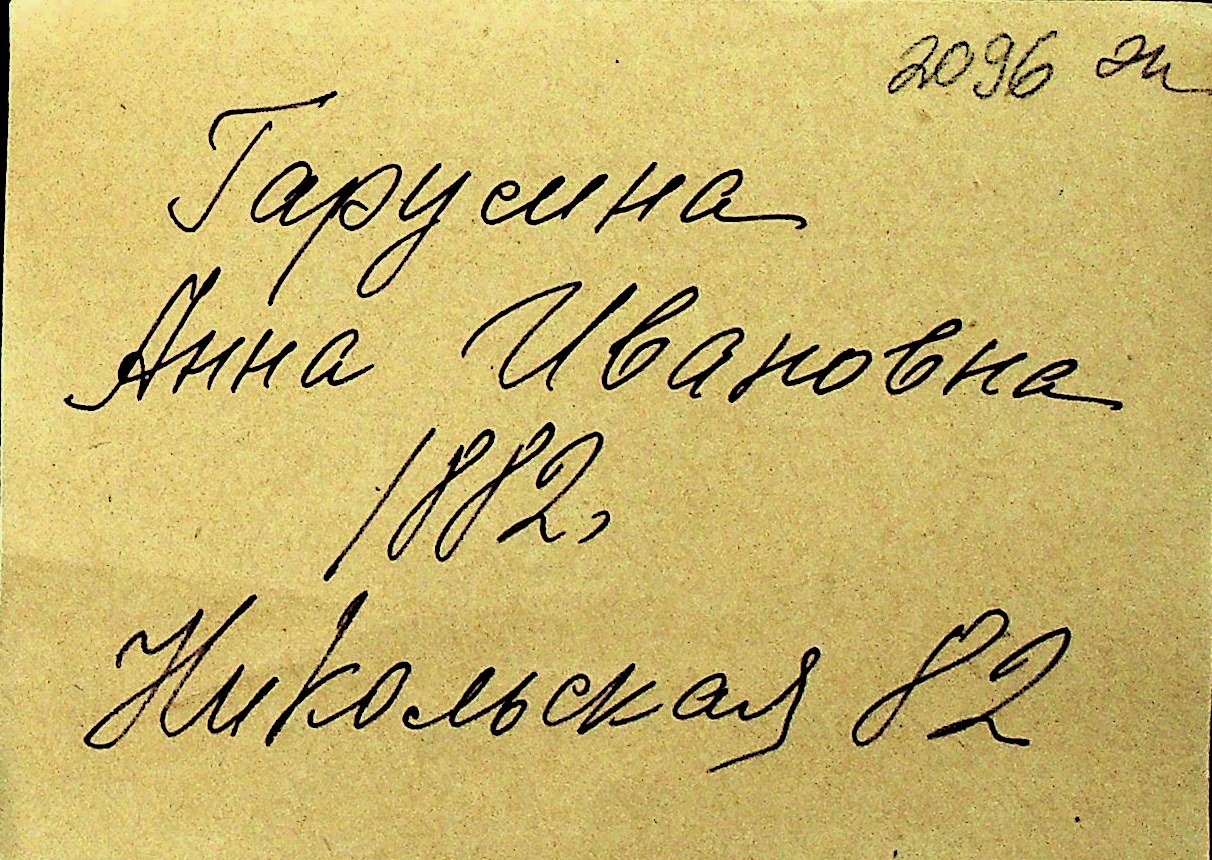 2096
Гарусина
Анна Ивановна
1882,
Никольская 82